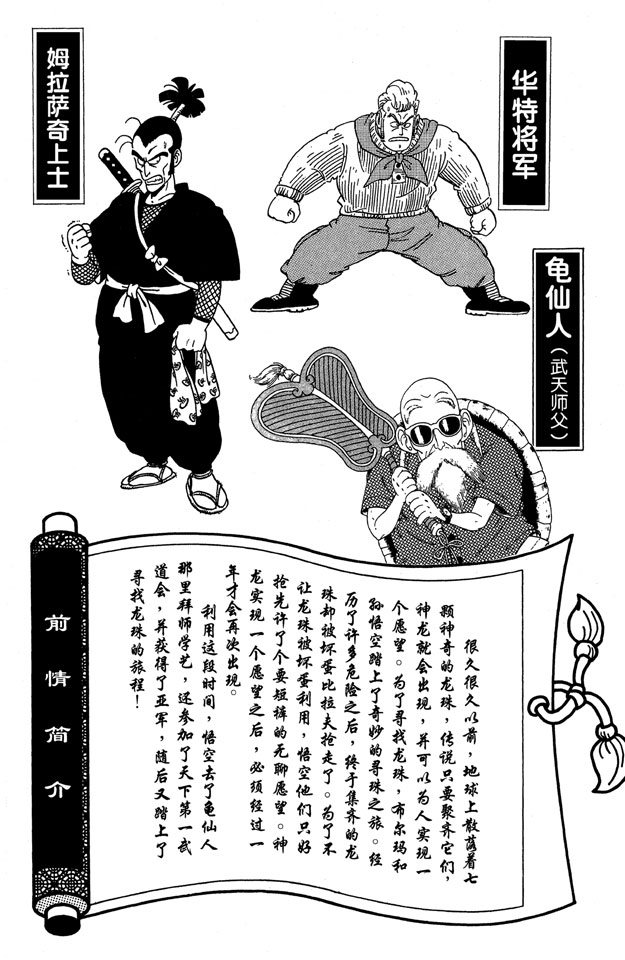 华特将军
姆拉萨奇上士
龟仙人（武天师父）
前情简介
很久很久以前，地球上散落着七
颗神奇的龙珠，传说只要聚齐它们，
神龙就会出现，并可以为人实现一
个愿望。为了寻找龙珠，布尔玛和
孙悟空踏上了奇妙的寻珠之旅。经
历了许多危险之后，终于集齐的龙
珠却被坏蛋比拉夫抢走了。为了不
让龙珠被坏蛋利用，悟空他们只好
抢先许了个要短裤的无聊愿望。神
龙实现一个愿望之后，必须经过一
年才会再次出现。
利用这段时间，悟空去了龟仙人
那里拜师学艺，还参加了天下第一武
道会，并获得了亚军，随后又踏上了
寻找龙珠的旅程！